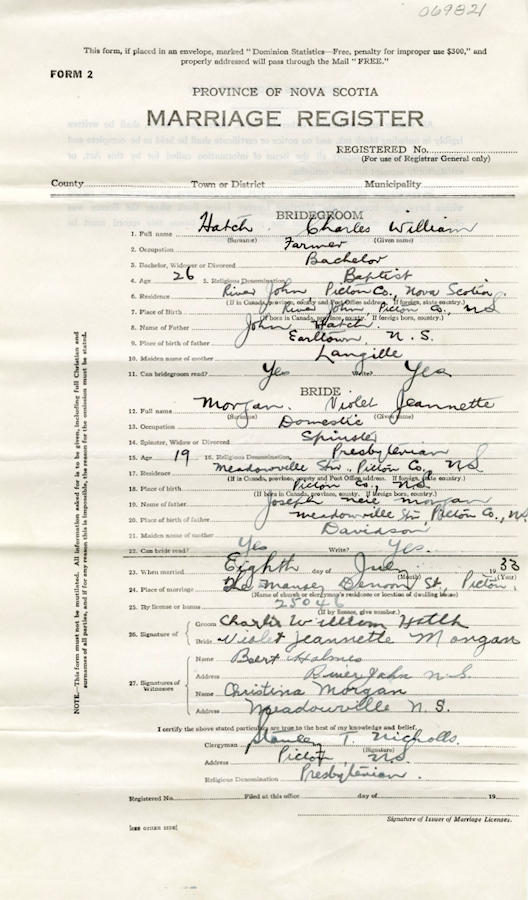 069821
This form, if placed in an envelope, marked "Dominion Statistics—Free, penalty for improper use $300," and
properly addressed will pass through the Mail "FREE."
FORM 2
PROVINCE OF NOVA SCOTIA
MARRIAGE REGISTER
REGISTERED No.
(For use of Registrar General only)
County Town or District Municipality
BRIDEGROOM
1. Full name Hatch Charles William
(Surname) (Given name)
2. Occupation Farmer
3. Bachelor, Widower or Divorced Bachelor
4. Age 26 5. Religious Denomination Baptist
6. Residence River John Pictou Co., Nova Scotia
(If in Canada, province, county and Post Office address. If foreign, state country.)
7. Place of Birth River John Pictou Co., N S
(If born in Canada, province, county. If foreign born, country.)
8. Name of Father John Hatch.
9. Place of birth of father Earltown, N. S.
10. Maiden name of mother Langille
11. Can bridegroom read? Yes Write? Yes
BRIDE
12. Full name Morgan. Violet Jeannette
(Surname) (Given name)
13. Occupation Domestic
14. Spinster, Widow or Divorced Spinster
15. Age 19 16. Religious Denomination Presbyterian
17. Residence Meadowville Stn., Pictou Co., N.S.
(If in Canada, province, county and Post Office address. If foreign, state country.)
18. Place of birth Pictou Co., N.S.
(If born in Canada, province, county. If foreign born, country.)
19. Name of father Joseph Morgan
20. Place of birth of father Meadowville Stn, Pictou Co., N.S.
21. Maiden name of mother Davidson
22. Can bride read? Yes Write? Yes.
23. When married Eighth day of 1933
(Month) (Year)
24. Place of marriage The Manse, Denoon St., Pictou.
(Name of church or clergyman's residence or location of dwelling house)
25. By license or banns 25046
(If by license, give number.)
26. Signature of Groom Charlie William Hatch
Bride Violet Jeannette Morgan
27. Signatures of Witnesses
Name Bert Holmes
Address River John N.S.
Name Christina Morgan
Address Meadowville N. S.
I certify the above stated particulars are true to the best of my knowledge and belief.
Clergyman Stanley T. Nicholls.
(Signature)
Address Pictou, N.S.
Religious Denomination Presbyterian.
Registered No. Filed at this office day of 19
Signature of Issuer of Marriage Licenses.
[SEE OTHER SIDE]
NOTE.—This form must not be mutilated. All information asked for is to be given, including full Christian and
surnames of all parties, and if for any reason this is impossible, the reason for the omission must be stated.